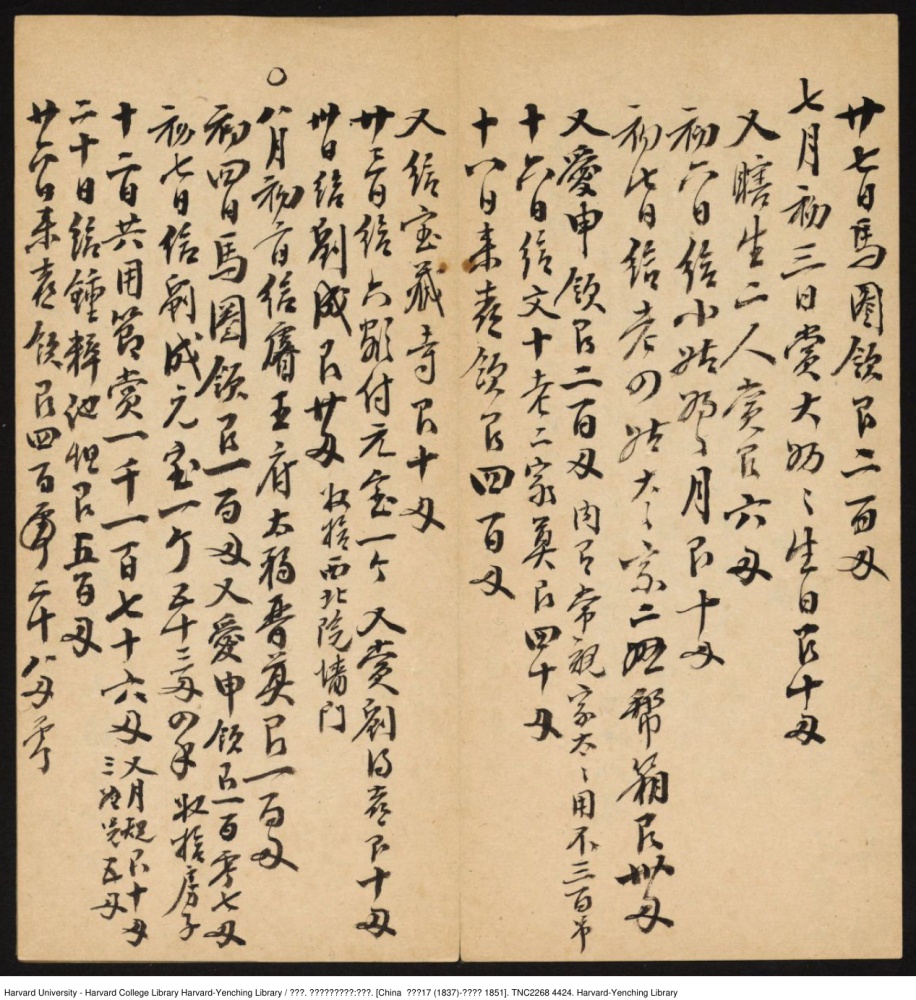 廿七日馬圈領艮二百兩
七月初三日賞大奶〻生日艮十兩
又瞎生二人賞艮六兩
初六日給小姑奶〻月艮十兩
初七日給老四姑太〻家二妞幫箱艮卅兩
又愛申領艮二百兩 內有常親家太〻用不三百吊
十六日給文十老二家奠艮四十兩
十八日來喜領艮四百兩
又給寶藏寺艮十兩
廿三日給六 付元寶一个 又賞劉得喜艮十兩
卅日給劉成艮廿兩 收拾西北院墻門
〇
八月初二日給睿王府太福晉奠艮一百兩
初四日馬圈領艮一百兩又愛申領艮一百零七兩
初七日給劉成元寶一个五十三兩四 收拾房子
十二日共用節賞一千一百七十六兩 又月 艮十兩
三 五兩
二十日給鍾粹他坦艮五百兩
廿六日來喜領艮四百 二十八兩零
Harvard University - Harvard College Library Harvard-Yenching Library / ???. ?????????:???. [China ???17 (1837)-???? 1851]. TNC2268 4424. Harvard-Yenching Library